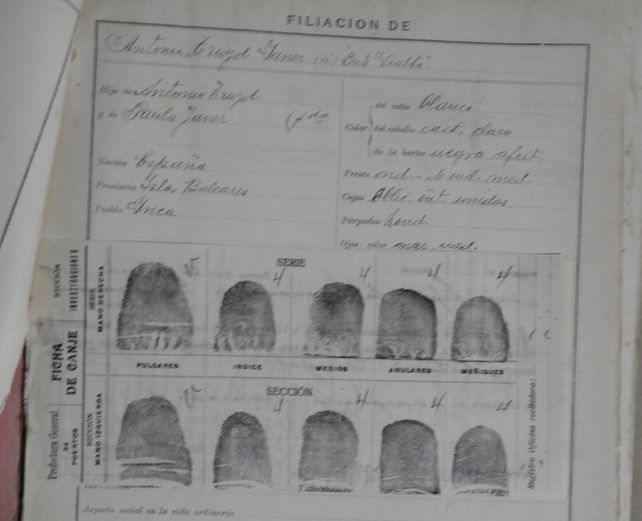 FILIACION DE
Antonio Truyol Janer (a) "Buti Vuelta".
Hijo de Antonio Truyol
y de Paula Janer
Nación España
Provincia Islas Baleares
Pueblo Inca
Color
del cutis blanco
del cabello cast. claro
de la barba negra afeit.
Frente
Cejas Oblic. int. unidas.
Párpados
Ojos: color
SECCIÓN
INVESTIGACIONES
FICHA
DE CANJE
Prefectura General
DE
PUERTOS
SERIE
MANO DERECHA
SERIE
V 4 4 4 4
PULGARES INDICE MEDIOS ANULARES MEÑIQUES
SECCIÓN
MANO IZQUIERDA
SECCIÓN
V 4 4 4 4
Registro Oficina recibidora:
Aspecto social en la vida ordinaria